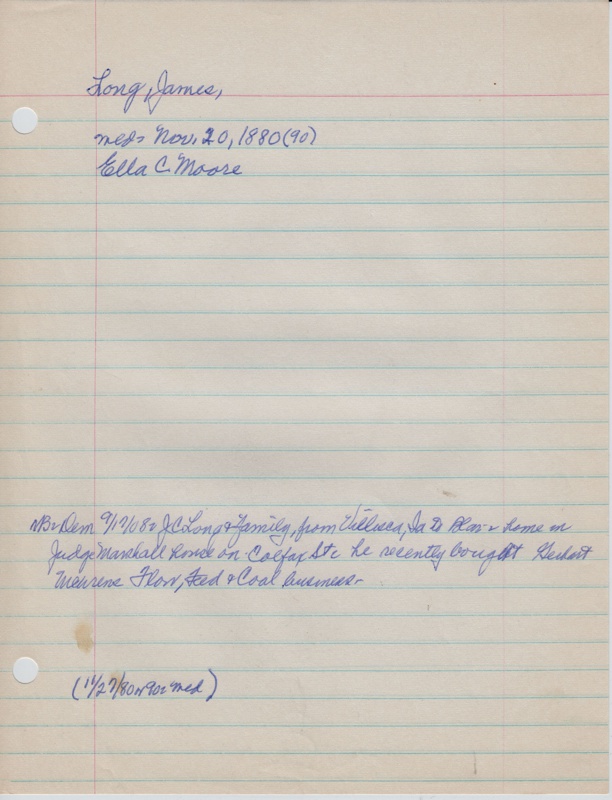 Long, James,
med- Nov. 20, 1880 (90)
Ella C. Moore
NB- Dem 9/17/08- J C Long & Family, from Villisca, Ia to Blair- home in
Judge Marshall House on Colfax St- he recently bought Herbert
Flour, Feed & Coal business-
(11/27/80 or 90- med)